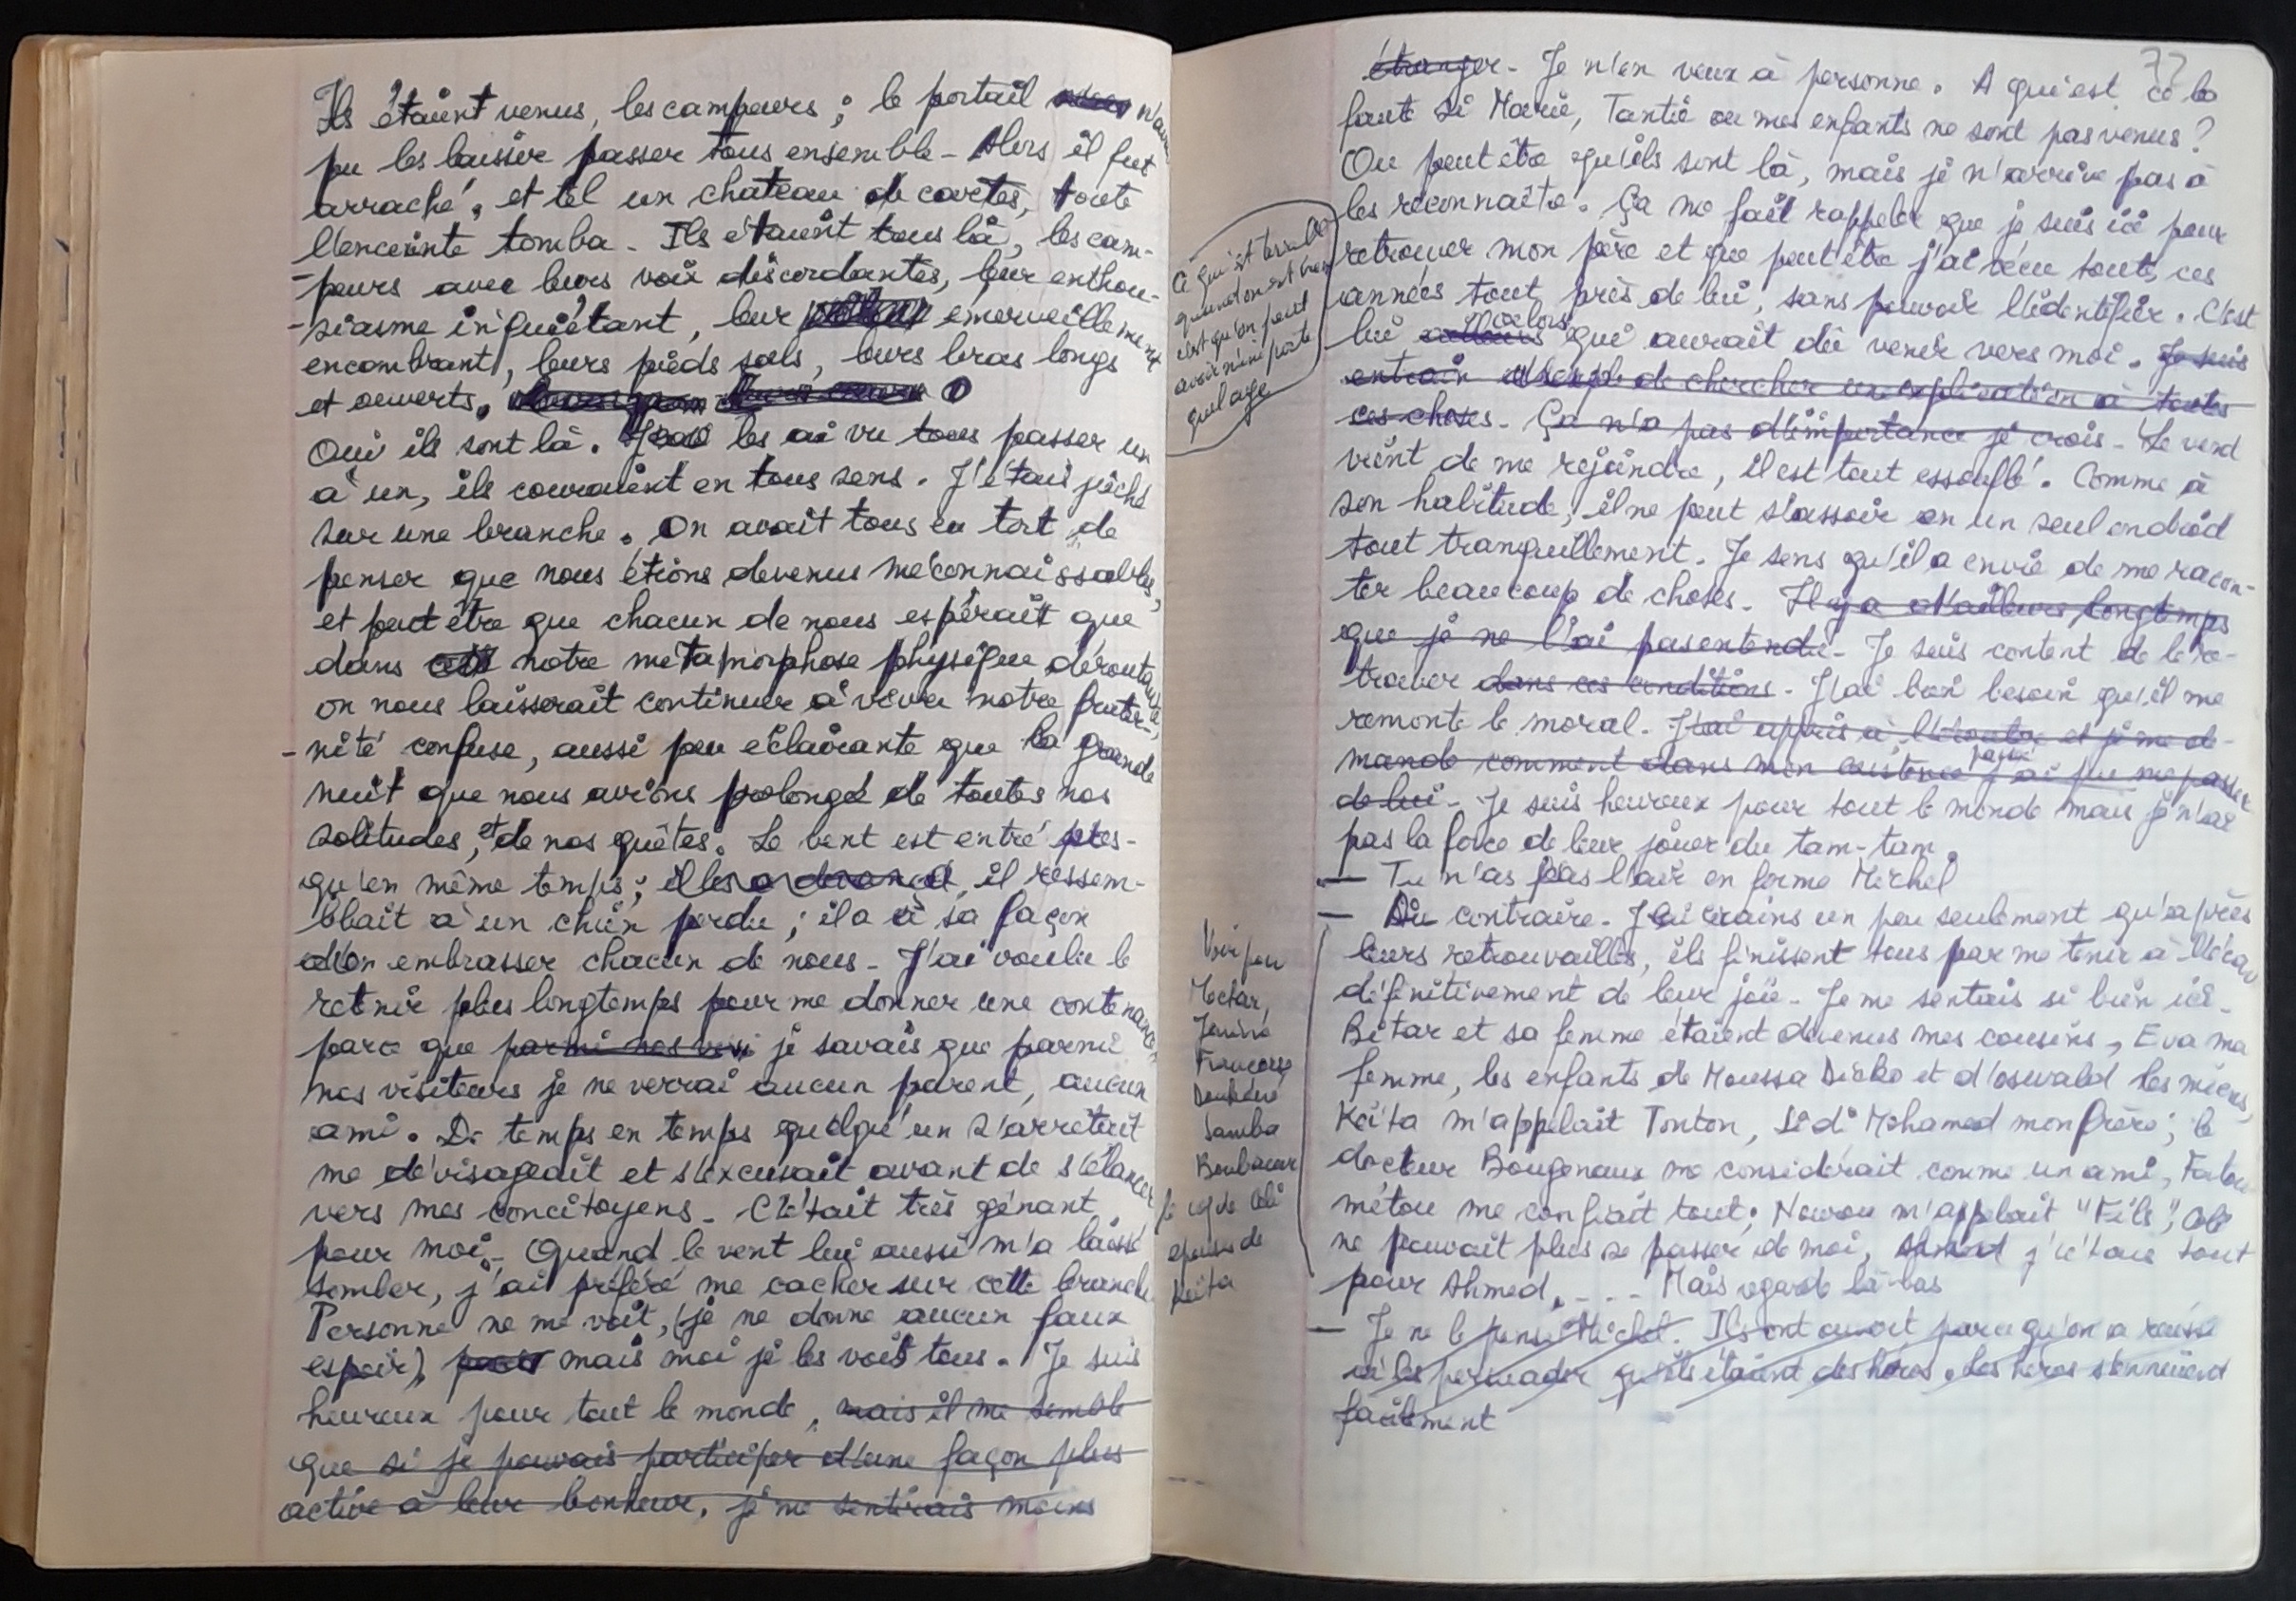 Ils étaient venus, les campeurs ; le portail n'avait
pu les laisser passer tous ensemble - Alors il fut
arraché, et tel un chateau de cartes, toute
l'enceinte tomba - Ils étaient tous là, les cam-
-peurs avec leurs voix discordantes, leur enthou-
-siasme inquiétant, leur emerveillement
encombrant, leurs pieds sals, leurs bras longs
et ouverts.
Oui ils sont là. Je les ai vu tous passer un
à un, ils couraient en tous sens. J'étais juché
sur une branche. On avait tous eu tort de
penser que nous étions devenus méconnaissables,
et peut être que chacun de nous espérait que
dans notre métamorphose physique déroutante,
on nous laisserait continuer à vivre notre frater-
-nité confuse, aussi peu éclairante que la grande
nuit que nous avions prolongée de toutes nos
solitudes, et de nos quêtes. Le vent est entré pres-
qu'en même temps ; il les a devancé, il ressem-
blait à un chien perdu ; il a à sa façon
d'en embrasser chacun de nous - J'ai voulu le
retenir plus longtemps pour me donner une contenance,
parce que parmi nos visi je savais que parmi
nos visiteurs je ne verrai aucun parent, aucun
ami. De temps en temps quelqu'un s'arrêtait
me dévisageait et s'excusait avant de s'élancer
vers mes concitoyens - C'était très gênant
pour moi - Quand le vent lui aussi m'a laissé
tomber, j'ai préféré me cacher sur cette branche
Personne ne me voit, (je ne donne aucun faux
espoir), mais moi je les vois tous. Je suis
heureux pour tout le monde, mais il me semble
que si je pouvais participer d'une façon plus
active à leur bonheur, je me sentirais moins
77
étranger - Je n'en veux à personne. A qui est ce la
faute si Marie, Tantie ou mes enfants ne sont pas venus ?
Ou peut être qu'ils sont là, mais je n'arrive pas à
les reconnaître. Ça me fait rappeler que je suis ici pour
retrouver mon père et que peut être j'ai vécu toutes ces
années tout près de lui, sans pouvoir l'identifier. C'est
lui alors qui aurait dû venir vers moi. Je suis
entrain de chercher une explication à toutes
ces choses - Ça n'a pas d'importance je crois - Le vent
vient de me rejoindre, il est tout essouflé. Comme à
son habitude, il ne peut s'assoir en un seul endroit
tout tranquillement. Je sens qu'il a envie de me racon-
ter beaucoup de choses - Il y a d'ailleurs longtemps
que je ne l'ai pas entendu - Je suis content de le re-
trouver dans ces conditions - J'ai bien besoin qu'il me
remonte le moral. J'ai appris à l'écouter et je me de-
mande comment dans mon existence passé j'ai pu me passer
de lui - Je suis heureux pour tout le monde mais je n'ai
pas la force de leur jouer du tam-tam.
— Tu n'as pas l'air en forme Michel
— Au contraire - Je crains un peu seulement qu'après
leurs retrouvailles, ils finissent tous par me tenir à l'écart
définitivement de leur joie - Je me sentais si bien ici -
Bitar et sa femme étaient devenus mes cousins, Eva ma
femme, les enfants de Moussa Dicko et d'oswald les miens,
Keïta m'appelait Tonton, Sidi Mohamed mon frère ; le
docteur Bougenaux me considérait comme un ami, Fatou
métou me confiait tout ; Nourou m'appelait "Fils", Ali
ne pouvait plus se passer de moi, j'étais tout
pour Ahmed, - - - Mais regarde là-bas
— Je ne le pense Michel. Ils ont avort parce qu'on a réussi
à les persuader qu'ils étaient des héros. Les heros s'ennuient
facilement
Ce qui est terrible
quand on est
c'est qu'on peut
avoir n'importe
quel age
Voir pour
Moctar,
Janine
Françoise
Samba
Boubacar
épouse de
Keïta